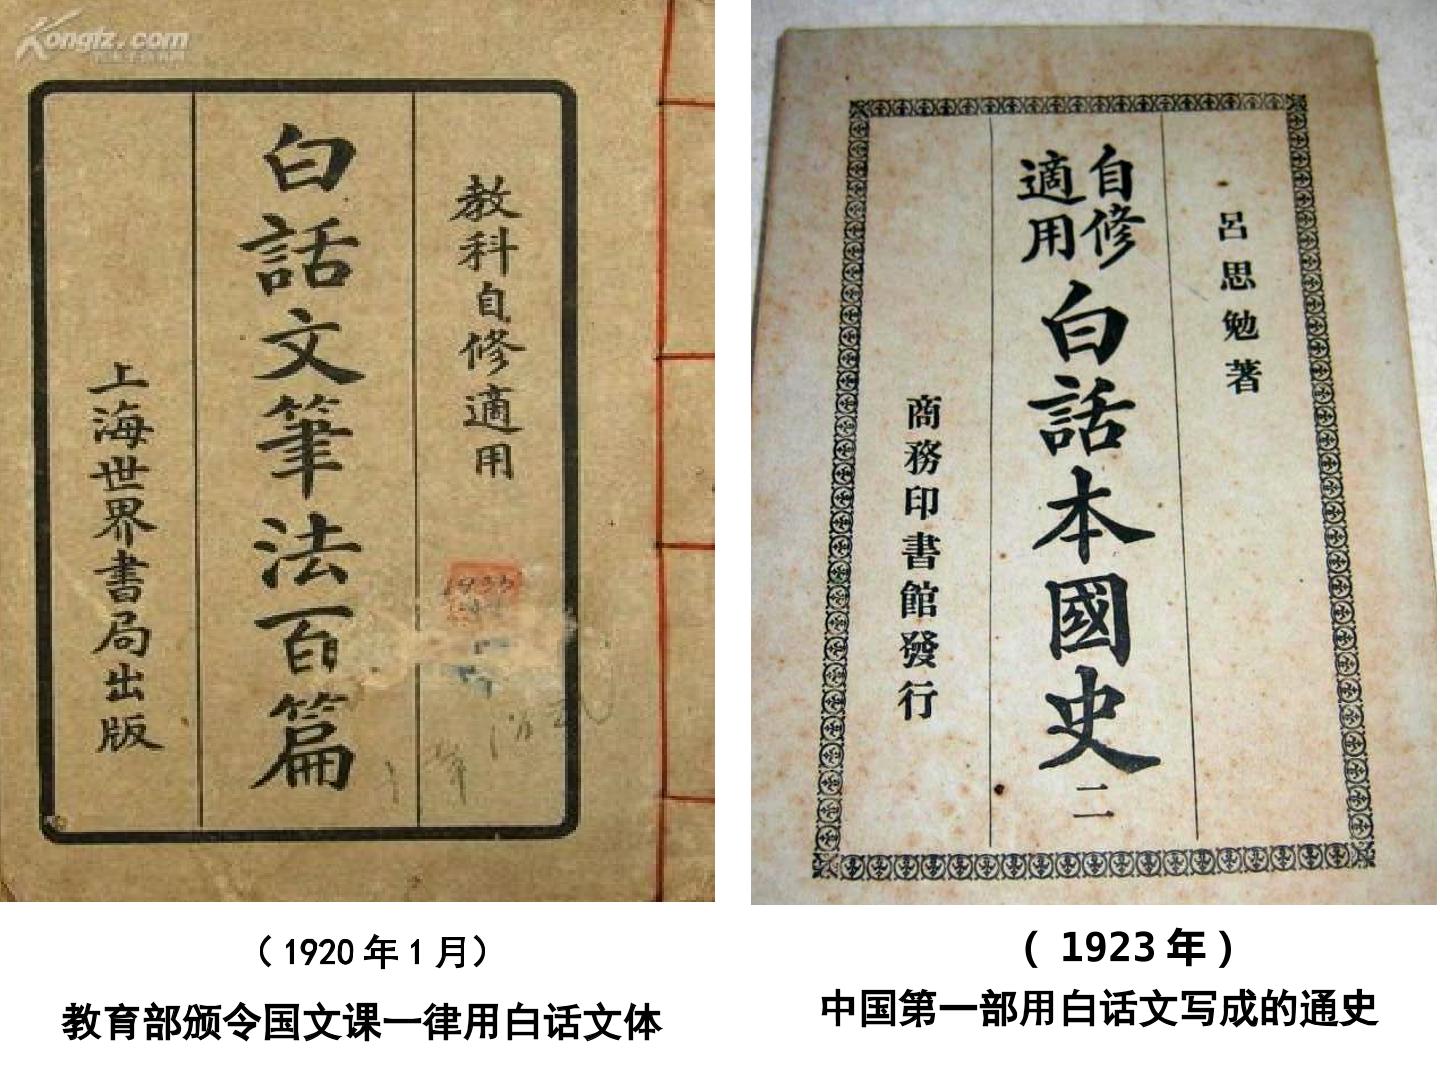 Kongfz.com
教科自修適用
白話文筆法百篇
上海世界書局出版
呂思勉著
自修
適用
白話本國史
二
商務印書館發行
（1920年1月）
教育部颁令国文课一律用白话文体
(1923年)
中国第一部用白话文写成的通史